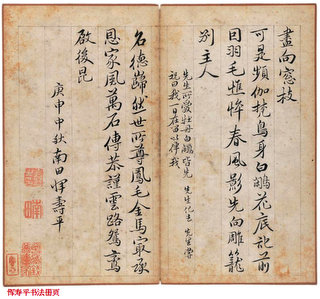 盡向窓枝
可是頻伽梵鳥身白鷴花底訴前
因羽毛憔悴春風影先向雕籠
別主人
先生所愛牡丹白鷴皆先 先生化去 先生嘗
祝曰我一日在當以伴我
名德歸然世所尊鳳毛金馬最承
恩家風萬石傳恭謹雲路鴛鸞
啟後昆
庚申中秋南田惲壽平
恽寿平书法册页